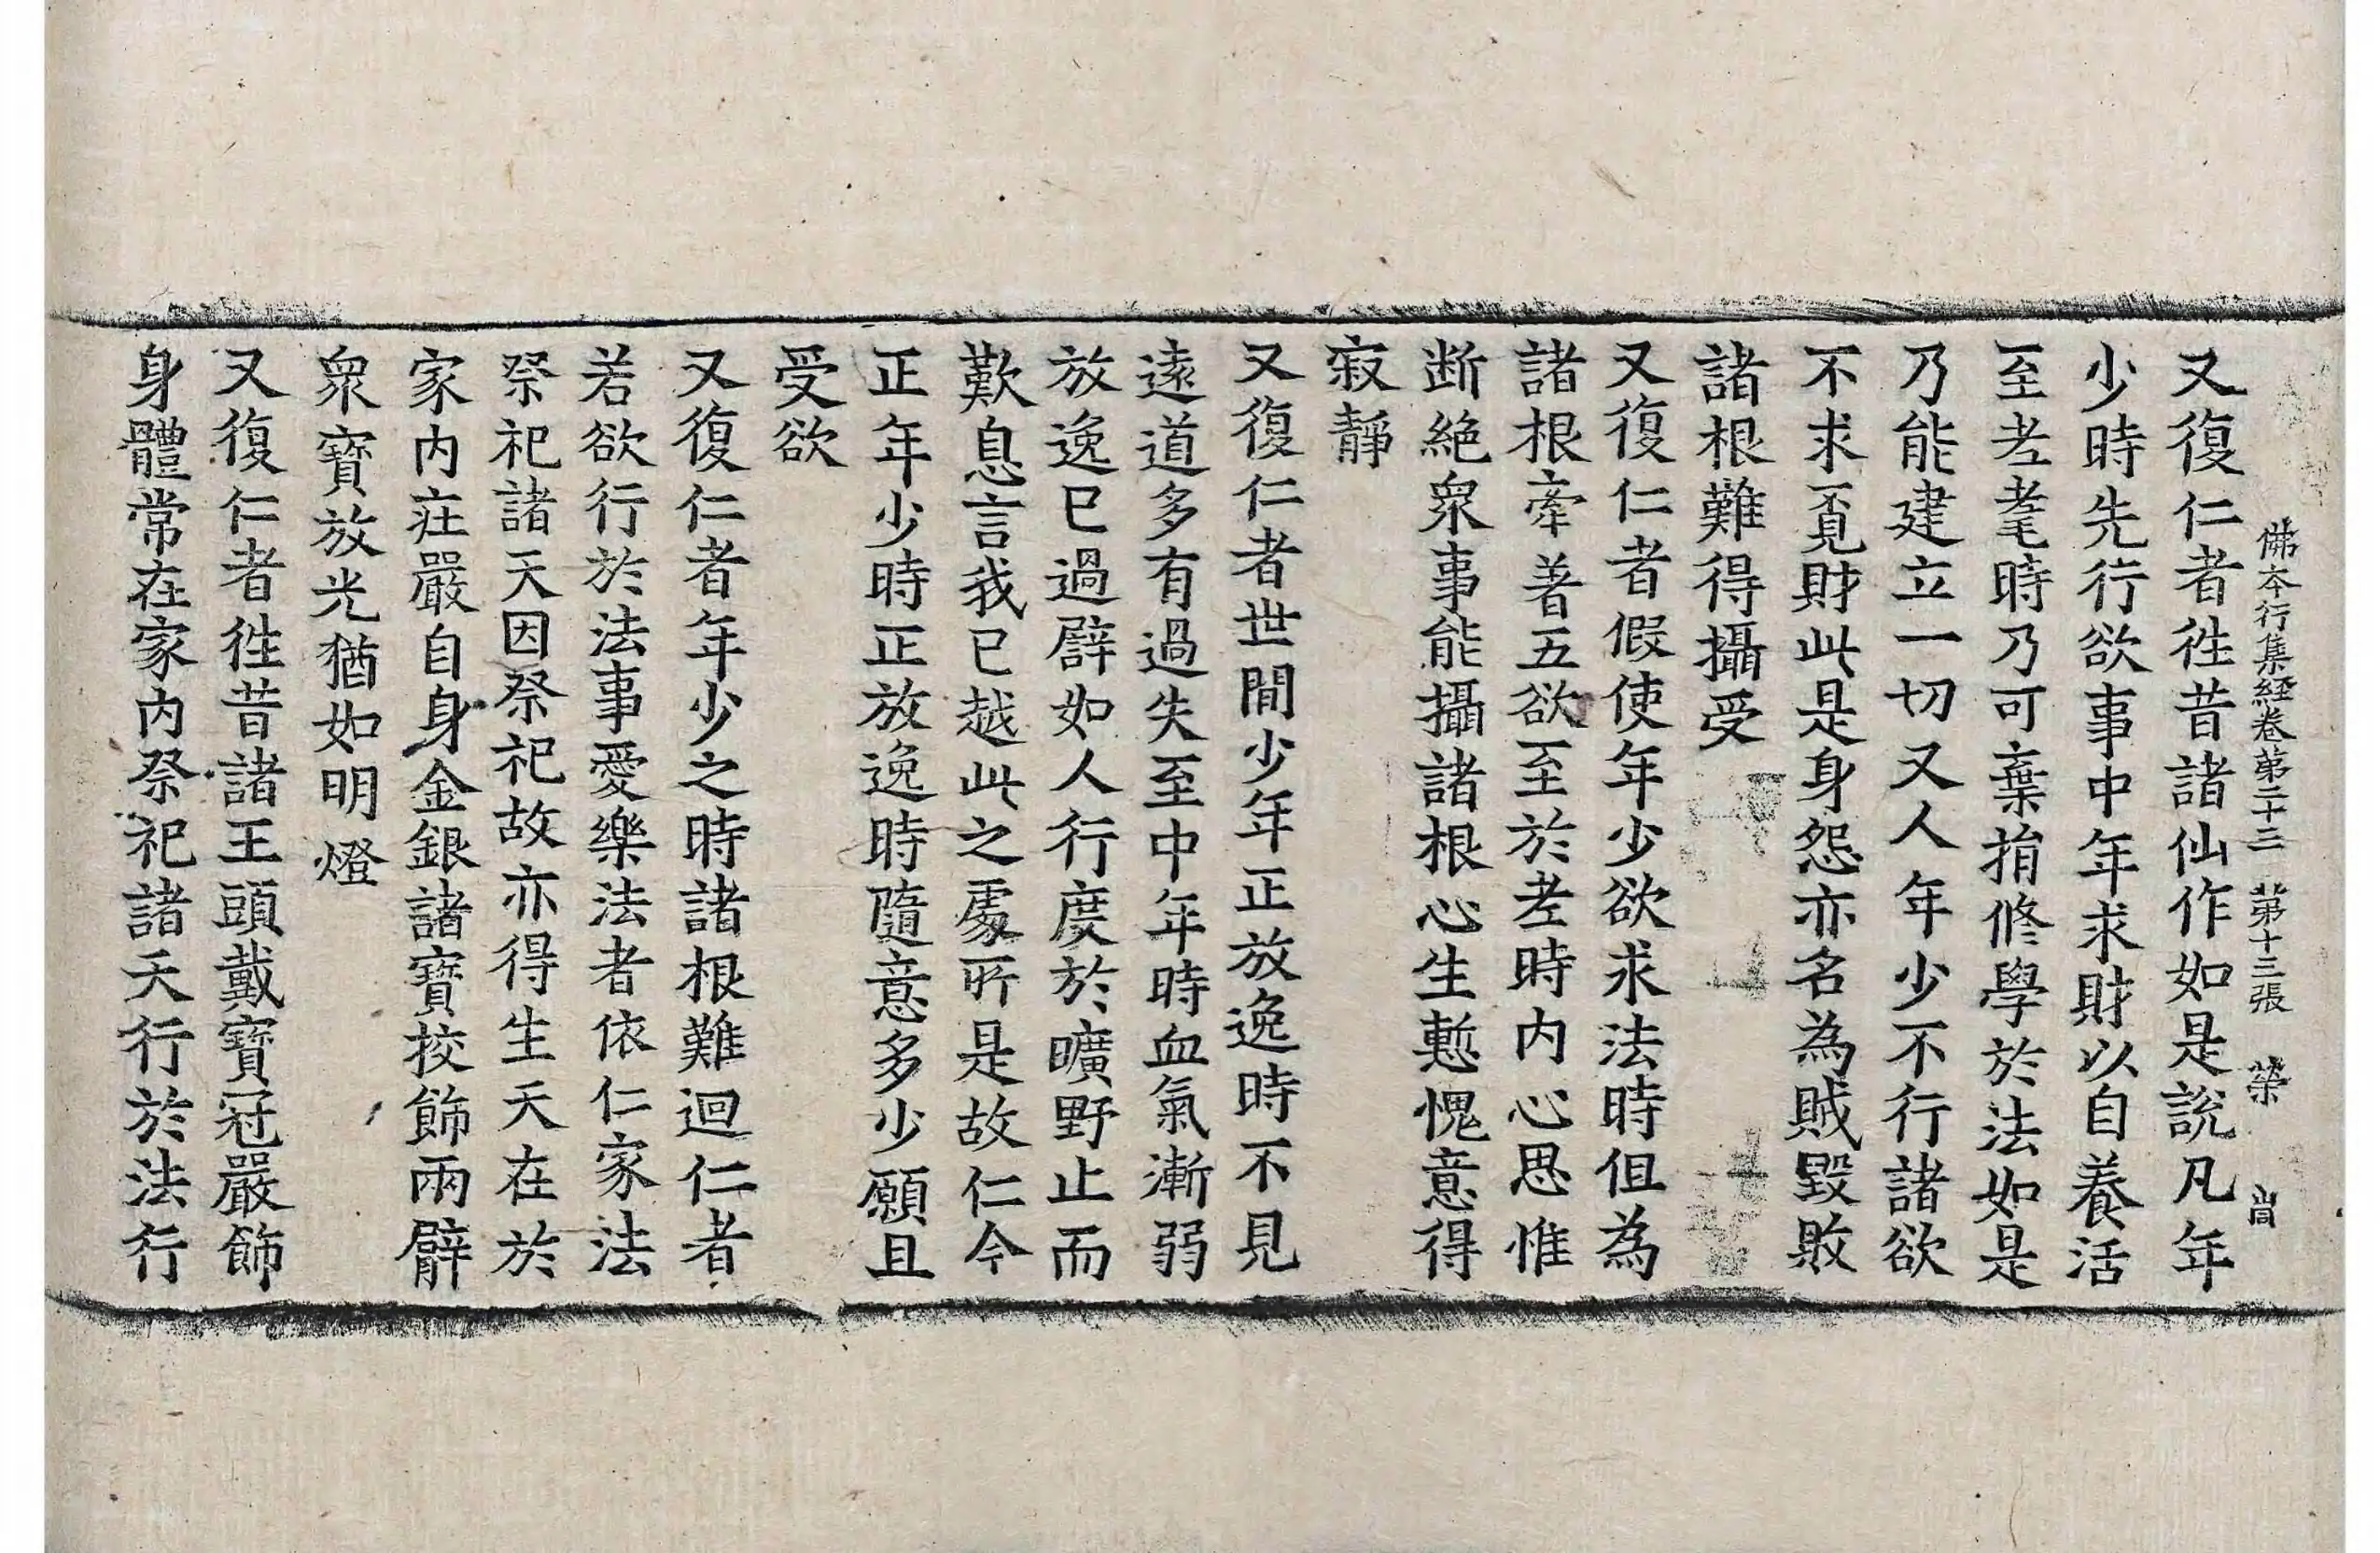 佛本行集経卷第二十三 第十三張 榮
又復仁者徃昔諸仙作如是說凡年
少時先行欲事中年求財以自養活
至老耄時乃可棄捐修學於法如是
乃能建立一切又人年少不行諸欲
不求覔財此是身怨亦名為賊毀敗
諸根難得攝受
又復仁者假使年少欲求法時伹為
諸根牽著五欲至於老時内心思惟
断絶衆事能攝諸根心生慙愧意得
寂靜
又復仁者世間少年正放逸時不見
遠道多有過失至中年時血氣漸弱
放逸已過譬如人行度於曠野止而
歎息言我已越此之處所是故仁今
正年少時正放逸時隨意多少願且
受欲
又復仁者年少之時諸根難迴仁者
若欲行於法事愛樂法者依仁家法
祭祀諸天因祭祀故亦得生天在於
家内莊嚴自身金銀諸寶挍飾兩臂
衆寶放光猶如明燈
又復仁者徃昔諸王頭戴寶冠嚴飾
身體常在家内祭祀諸天行於法行